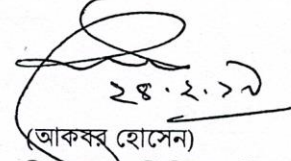 ২৪.২.১৯
(আকবর হোসেন)